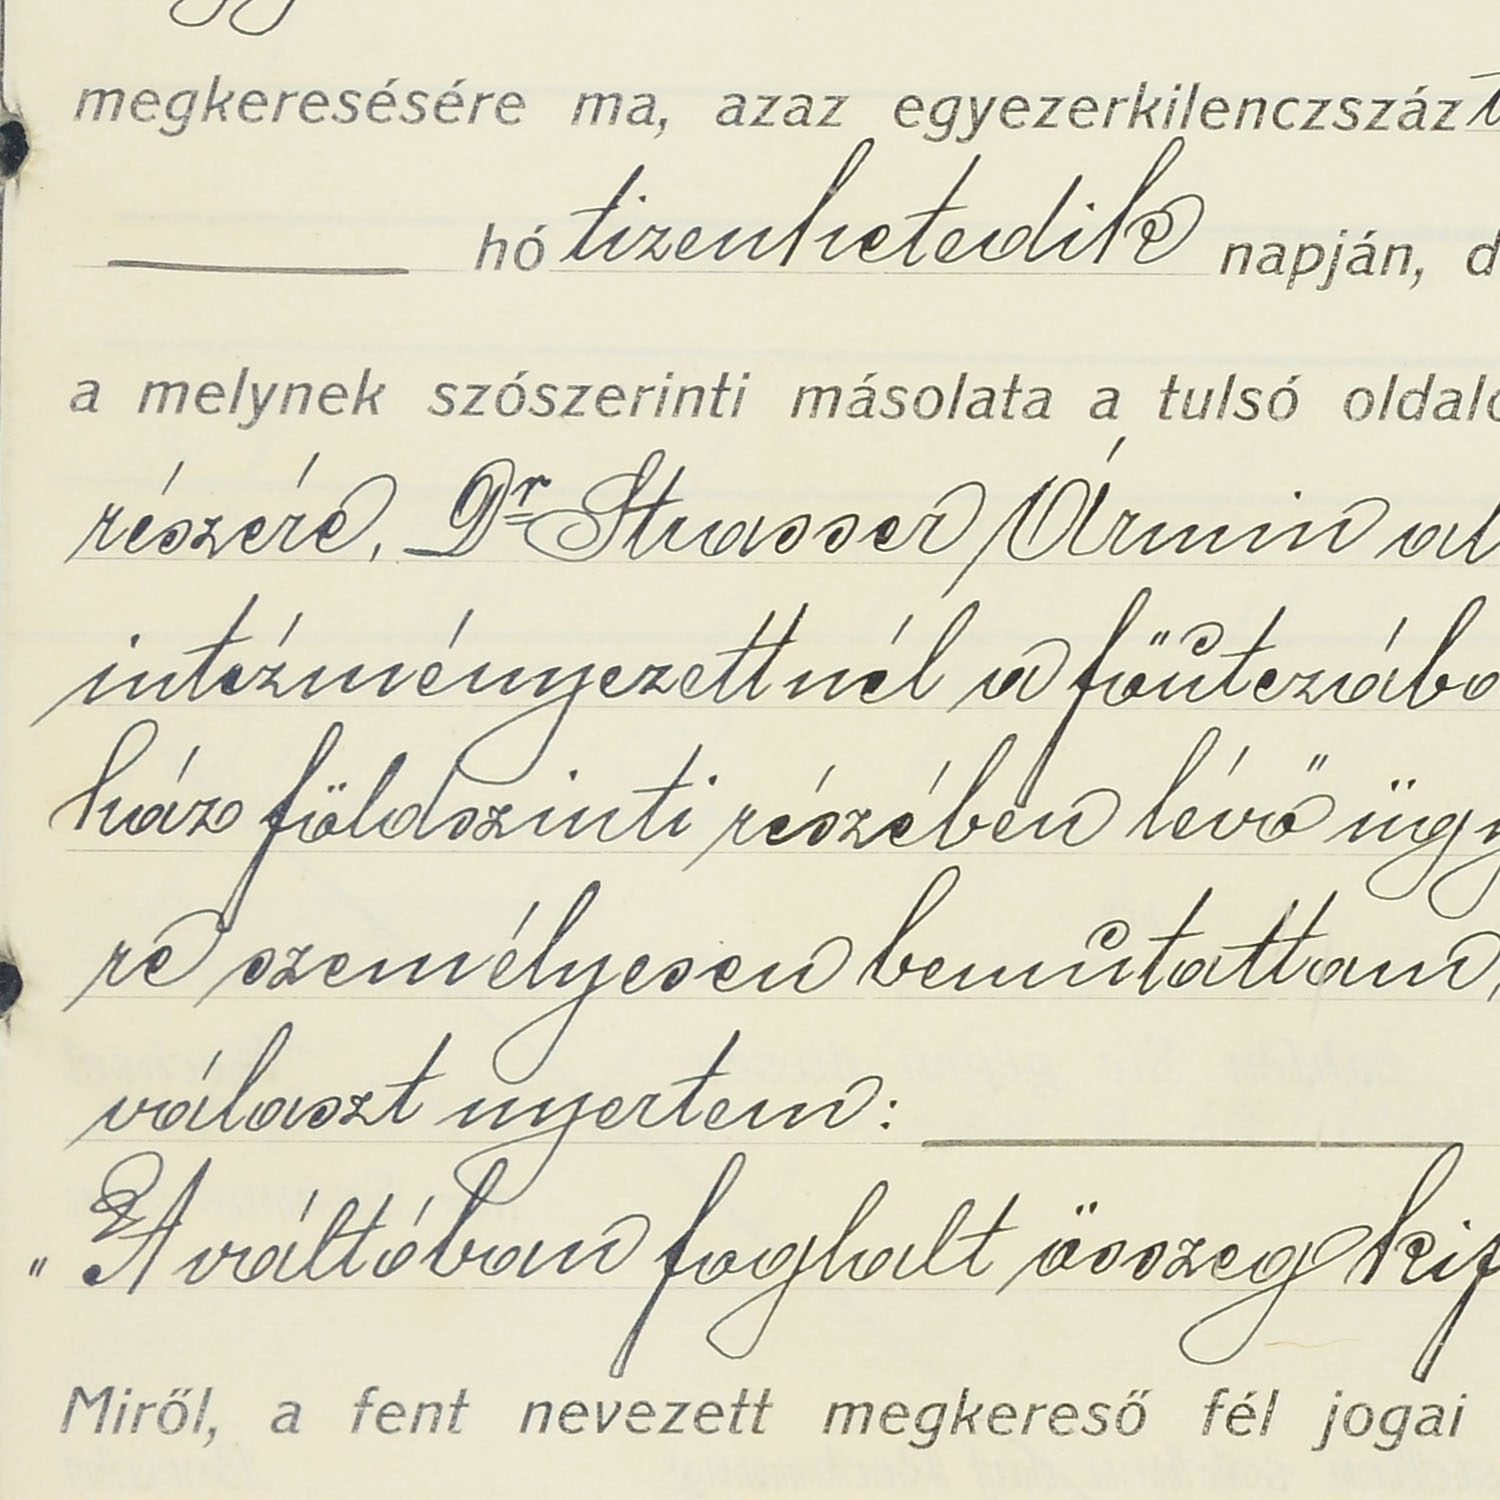 megkeresésére ma, azaz egyezerkilenczszáz
hó tizenhetedik napján, d
a melynek szószerinti másolata a tulsó oldalo
részére, Dr Strasser Ármin al
intézményezettnél a főutczábа
ház földszinti részében lévő ügy
re személyesen bemutattam,
választ nyertem:
"A váltóban foglalt összeg kif
Miről, a fent nevezett megkereső fél jogai